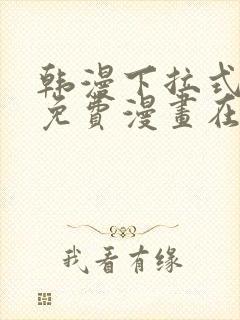 韩漫下拉式
免費漫畫在
我看有缘